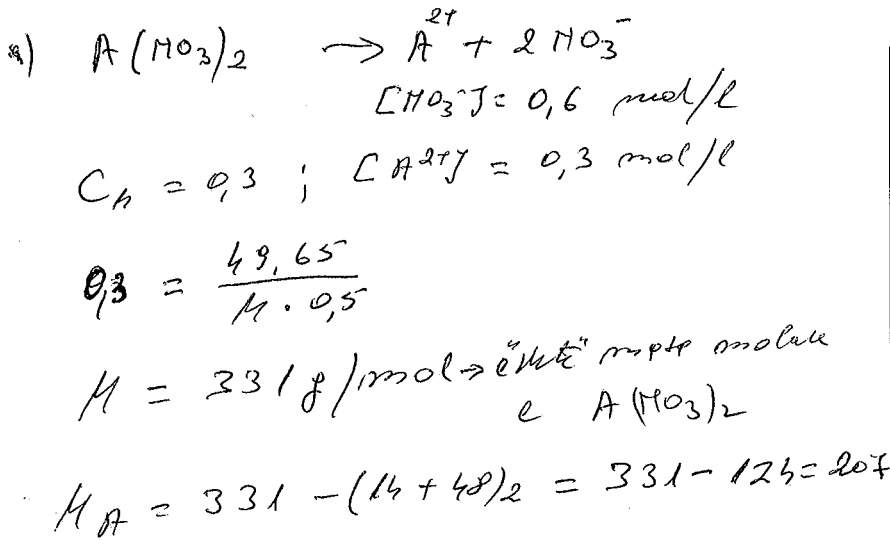 a) A(NO₃)₂ → A²⁺ + 2NO₃⁻
[NO₃⁻] = 0,6 mol/l
Cₙ = 0,3 ; [A²⁺] = 0,3 mol/l
0,3 = 49,65 / M · 0,5
M = 331 g/mol → është masa molare
e A(NO₃)₂
M_A = 331 - (14 + 48)2 = 331 - 124 = 207